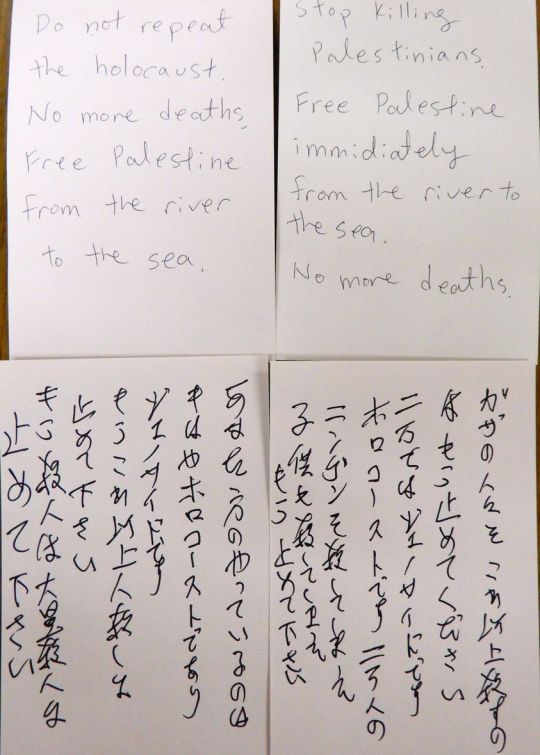 Do not repeat
the holocaust.
No more deaths.
Free Palestine
from the river
to the sea.
Stop killing
Palestinians.
Free Palestine
immidiately
from the river to
the sea.
No more deaths.
あなた方のやっているのは
もはやホロコーストであり
ジェノサイドです
もうこれ以上人殺しは
止めて下さい
もう殺人は大量殺人は
止めて下さい
ガザの人々をこれ以上殺すの
はもう止めてください
ジェノサイドです
ホロコーストです 二万人の
ニンゲンを殺して
子供を殺して
もう止めて下さい